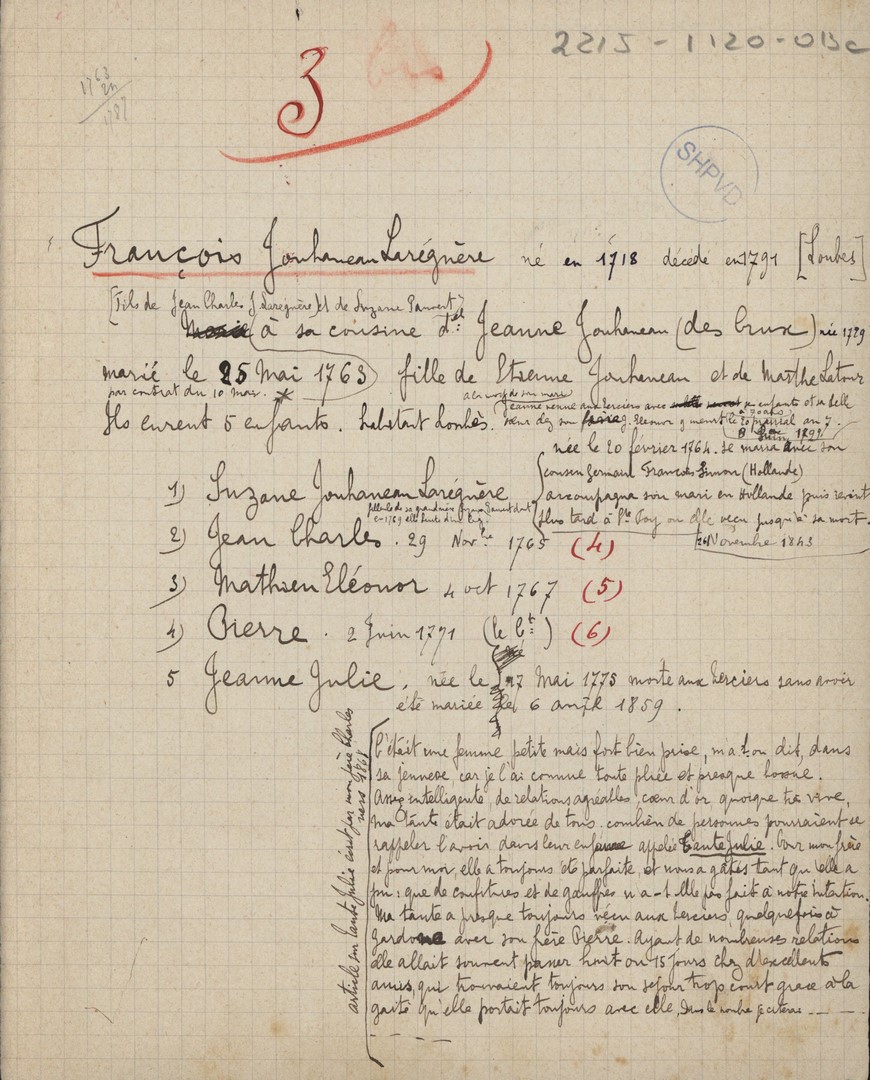 2215 - 1120 - 013c
3 bis
1763
24
1787
SHPVD
François Jouhaneau Larégnère né en 1718 décédé en 1791 [Loubes]
[Fils de Jean Charles J. Laregnère) et de Suzane Pauvert]
à sa cousine d^elle: Jeanne Jouhaneau (des Crux) née 1729
marié le 25 Mai 1763) fille de Etienne Jouhaneau et de Marthe Latour
par contrat du 10 mai.
Ils eurent 5 enfants. habitant Loubès.
a la mort de son mari
Jeanne revint aux Merciers avec ses enfants et sa belle
sœur Eléonor y meurt le 20 prairial an 7.
à 70 ans
8 Juin 1799
née le 20 février 1764. se maria avec son
cousin Germain François Simon (Hollande)
1) Suzane Jouhaneau Larégnère
accompagna son mari en Hollande puis revint
filleule de sa grand mère Suzane Pauvert dont
plus tard à Ste Foy ou elle vécu jusqu'à sa mort.
2) Jean Charles. 29 Nov^bre 1765 (4)
26 Novembre 1843
3) Mathieu Eléonor 4 oct 1767 (5)
4) Pierre. 2 Juin 1771 (le C^t:) (6)
5 Jeanne Julie, née le 27 Mai 1775 morte aux Merciers sans avoir
été mariée le 6 avril 1859.
article sur tante Julie écrit par mon père Charles
vers 1868
C'était une femme petite mais fort bien prise, m'a t-on dit, dans
sa jeunesse, car je l'ai connue toute pliée et presque bossue.
Assez intelligente, de relations agréables, cœur d'or quoique très vive,
ma tante était adorée de tous. combien de personnes pourraient se
rappeler l'avoir dans leur enfance appelée tante Julie. Pour mon frère
et pour moi, elle a toujours été parfaite, et nous a gatés tant qu'elle a
pu: que de confitures et de gauffres n'a-t-elle pas fait à notre intention.
Ma tante a presque toujours vécu aux Merciers, quelquefois à
Gardonne avec son frère Pierre. Ayant de nombreuses relations
elle allait souvent passer huit ou 15 jours chez d'excellents
amis, qui trouvaient toujours son sejour trop court grace à la
gaité qu'elle portait toujours avec elle, Dans le nombre je citerai - - - -
- - - -